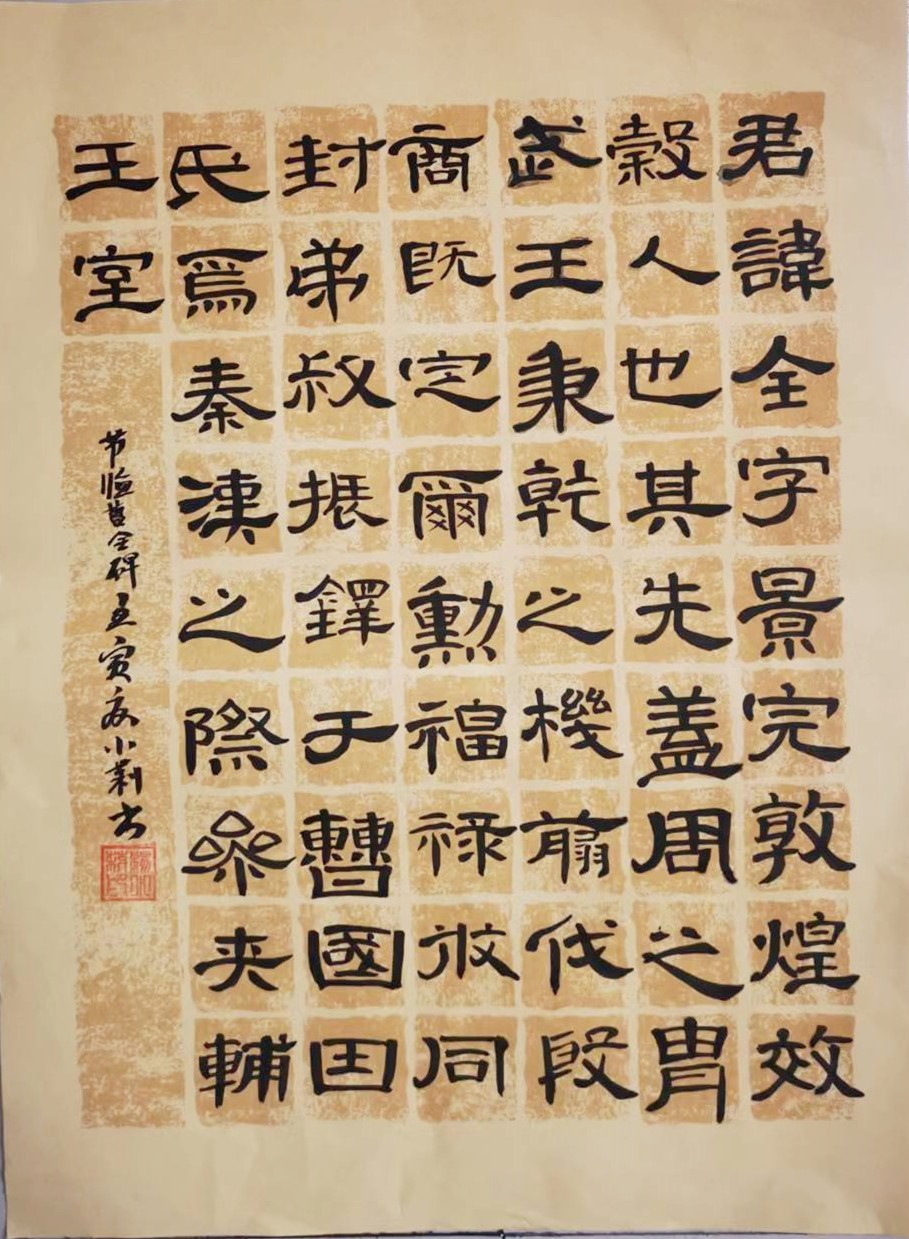 君諱全字景完敦煌效
穀人也其先蓋周之胄
武王秉乾之機翦伐殷
商既定爾勳福禄攸同
封弟叔振鐸于曹國因
氏爲秦漢之際參夹輔
王室
节临曹全碑壬寅小莉书